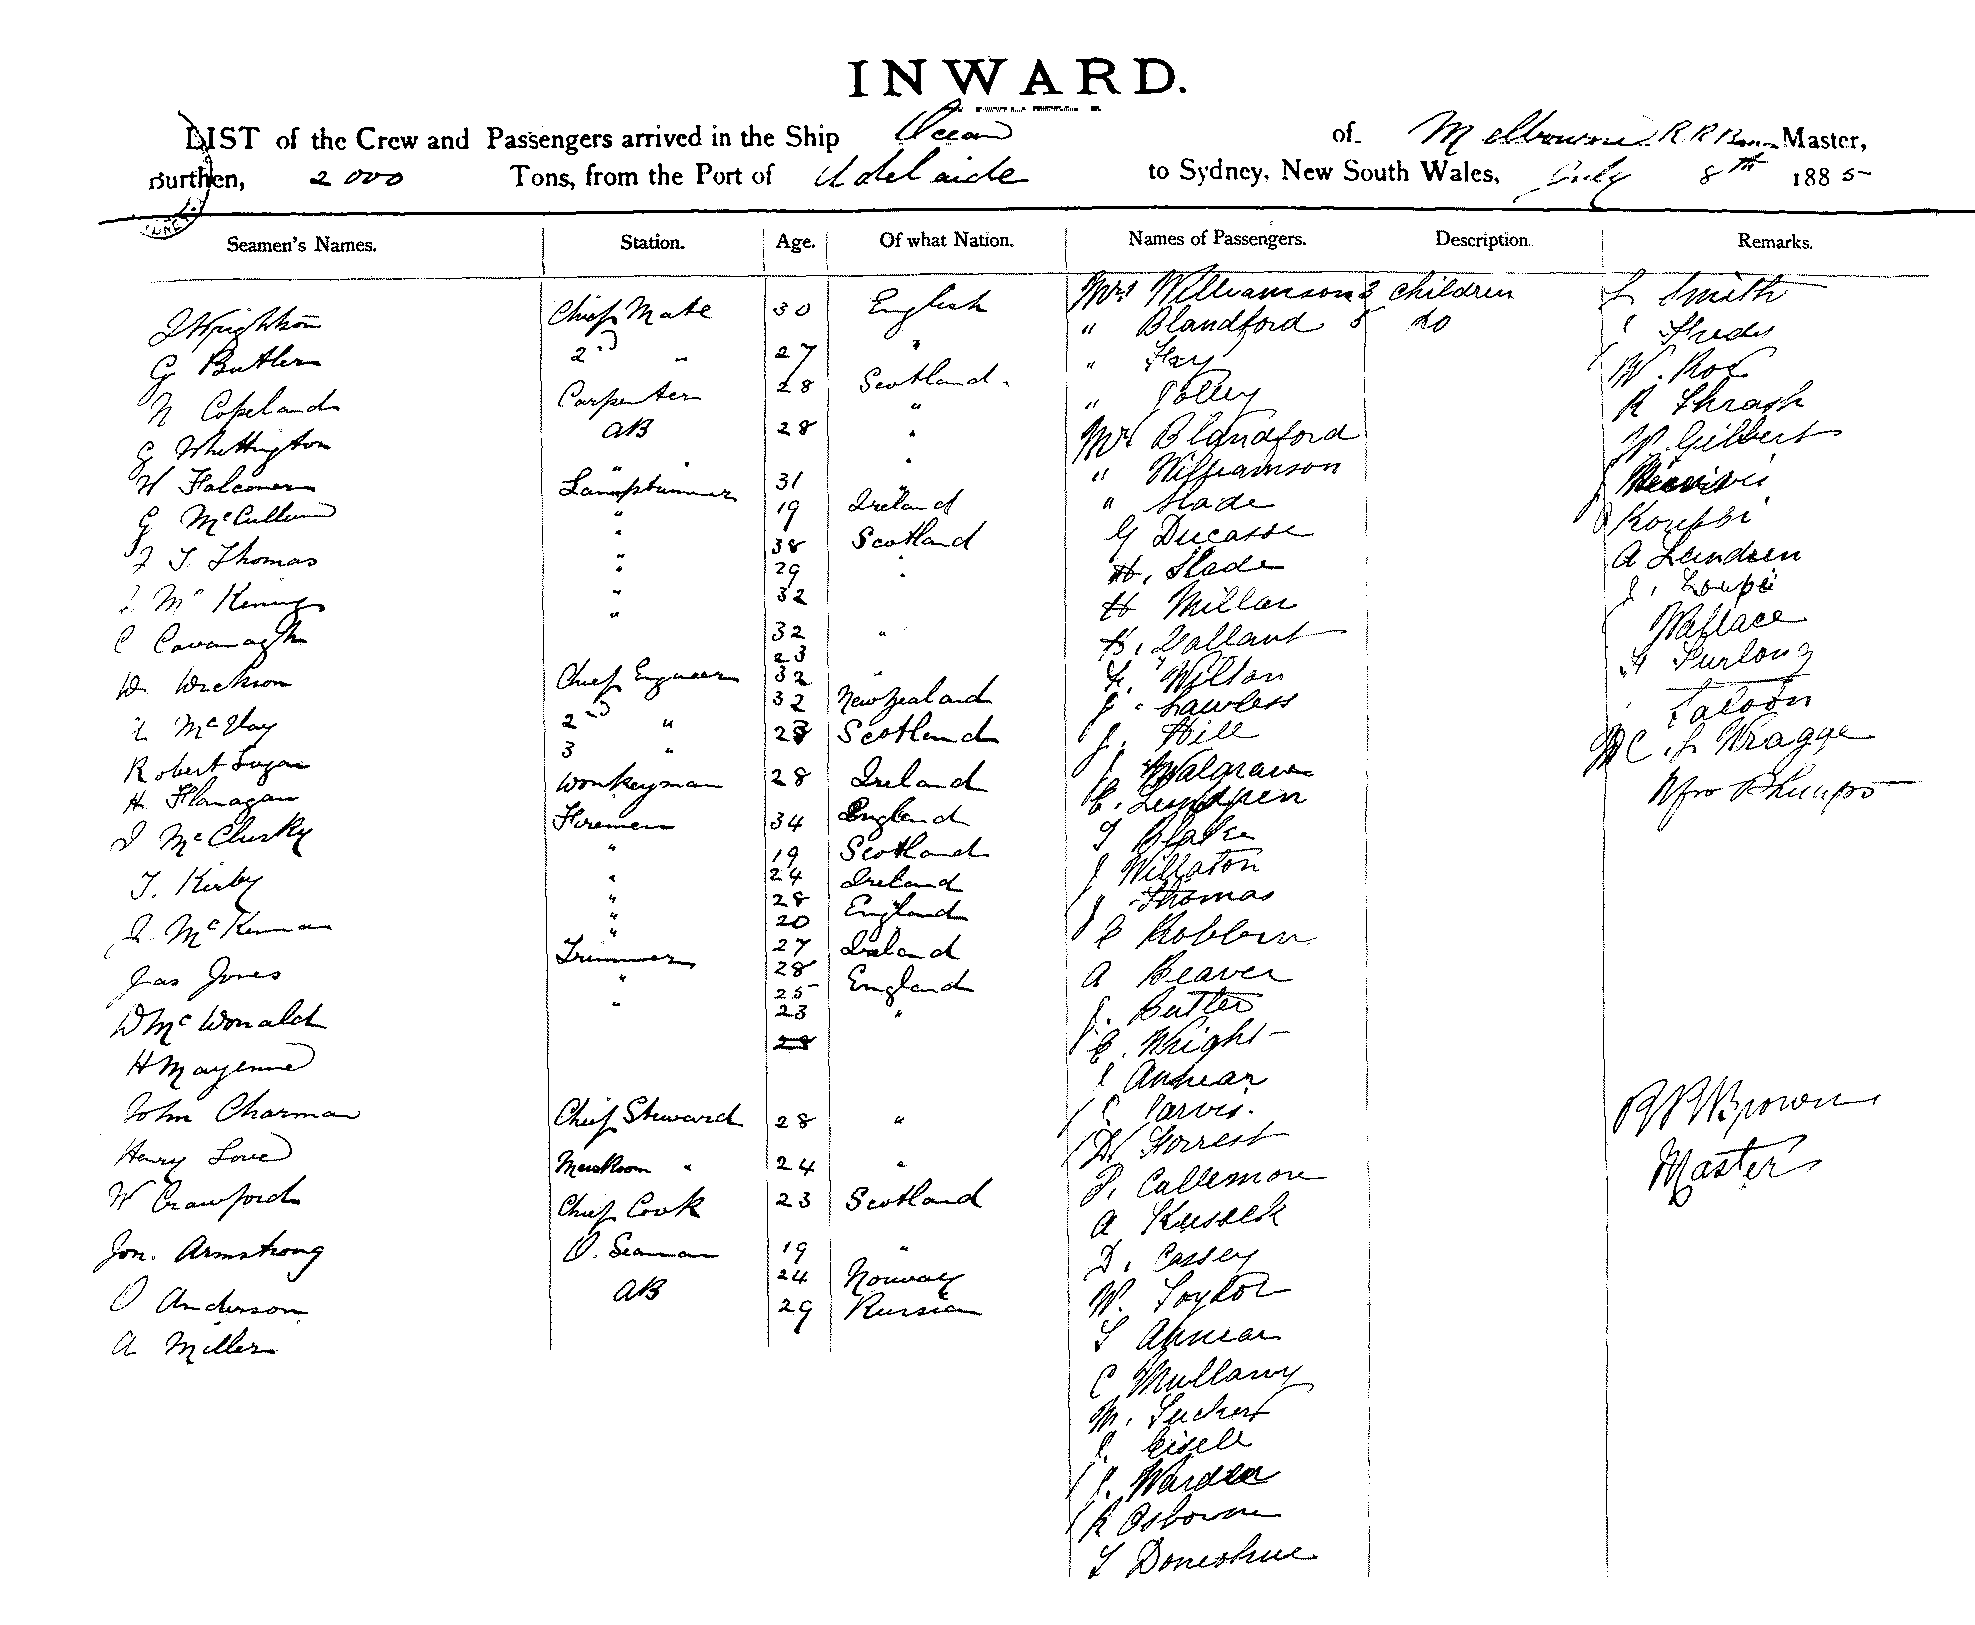 INWARD.
LIST of the Crew and Passengers arrived in the Ship Ocean of Melbourne R R Brown Master,
Burthen, 2000 Tons, from the Port of Adelaide to Sydney, New South Wales, July 8th 1885
Seamen's Names. Station. Age. Of what Nation. Names of Passengers. Description. Remarks.
J Wrightson Chief Mate 30 English
G Butler 2nd " 27 "
N Copeland Carpenter 28 Scotland
G Whittington AB 28 "
W Falconer Lamptrimmer 31 "
G McCullum " 19 Ireland
J T Thomas " 38 Scotland
J Mc " 29 "
C Cavanagh " 32
W. " 32 "
J McVay 23
Robert Chief Engineer 32 "
H. Flanagan 2nd " 32 New Zealand
J McClusky 3 " 23 Scotland
T. Kirby Donkeyman 28 Ireland
J. McKennan Firemen 34 England
Jas Jones " 19 Scotland
D McDonald " 24 Ireland
H Mayenne " 28 England
John Charman " 20
Henry Love Trimmers 27 Ireland
W Crawford " 28
Jon. Armstrong " 25 England
O Anderson 23 "
A Miller 28
Chief Steward 28 "
Messroom " 24 "
Chief Cook 23 Scotland
O. Seaman 19 "
AB 24 Norway
29 Russian
Mrs Williamson 3 children
" Blandford 5 do
" Hay
" Polley
Mr Blandford
" Williamson
" Slade
G Ducasse
H. Slade
H Millar
H. Gallant
Wilton
J. Lawless
J. Hill
J Walgrave
C. Lundren
T Blake
J Willaton
J Thomas
C Robbern
A Beaver
J. Butler
C. Wright
J Annear
C Jarvis.
W Forrest
P. Callemore
A Kussek
D. Cassey
W. Taylor
T Annear
C Mullany
M. Tucker
J. Eisele
J. Warden
R Osborne
T Donoshue
L Smith
W. Roe
R Thrash
W. Gilbert
A Lundren
J. Loupi
Wallace
H Furlong
Saloon
Mr C. L Wragge
Mrs Phillips
R R Brown
Master